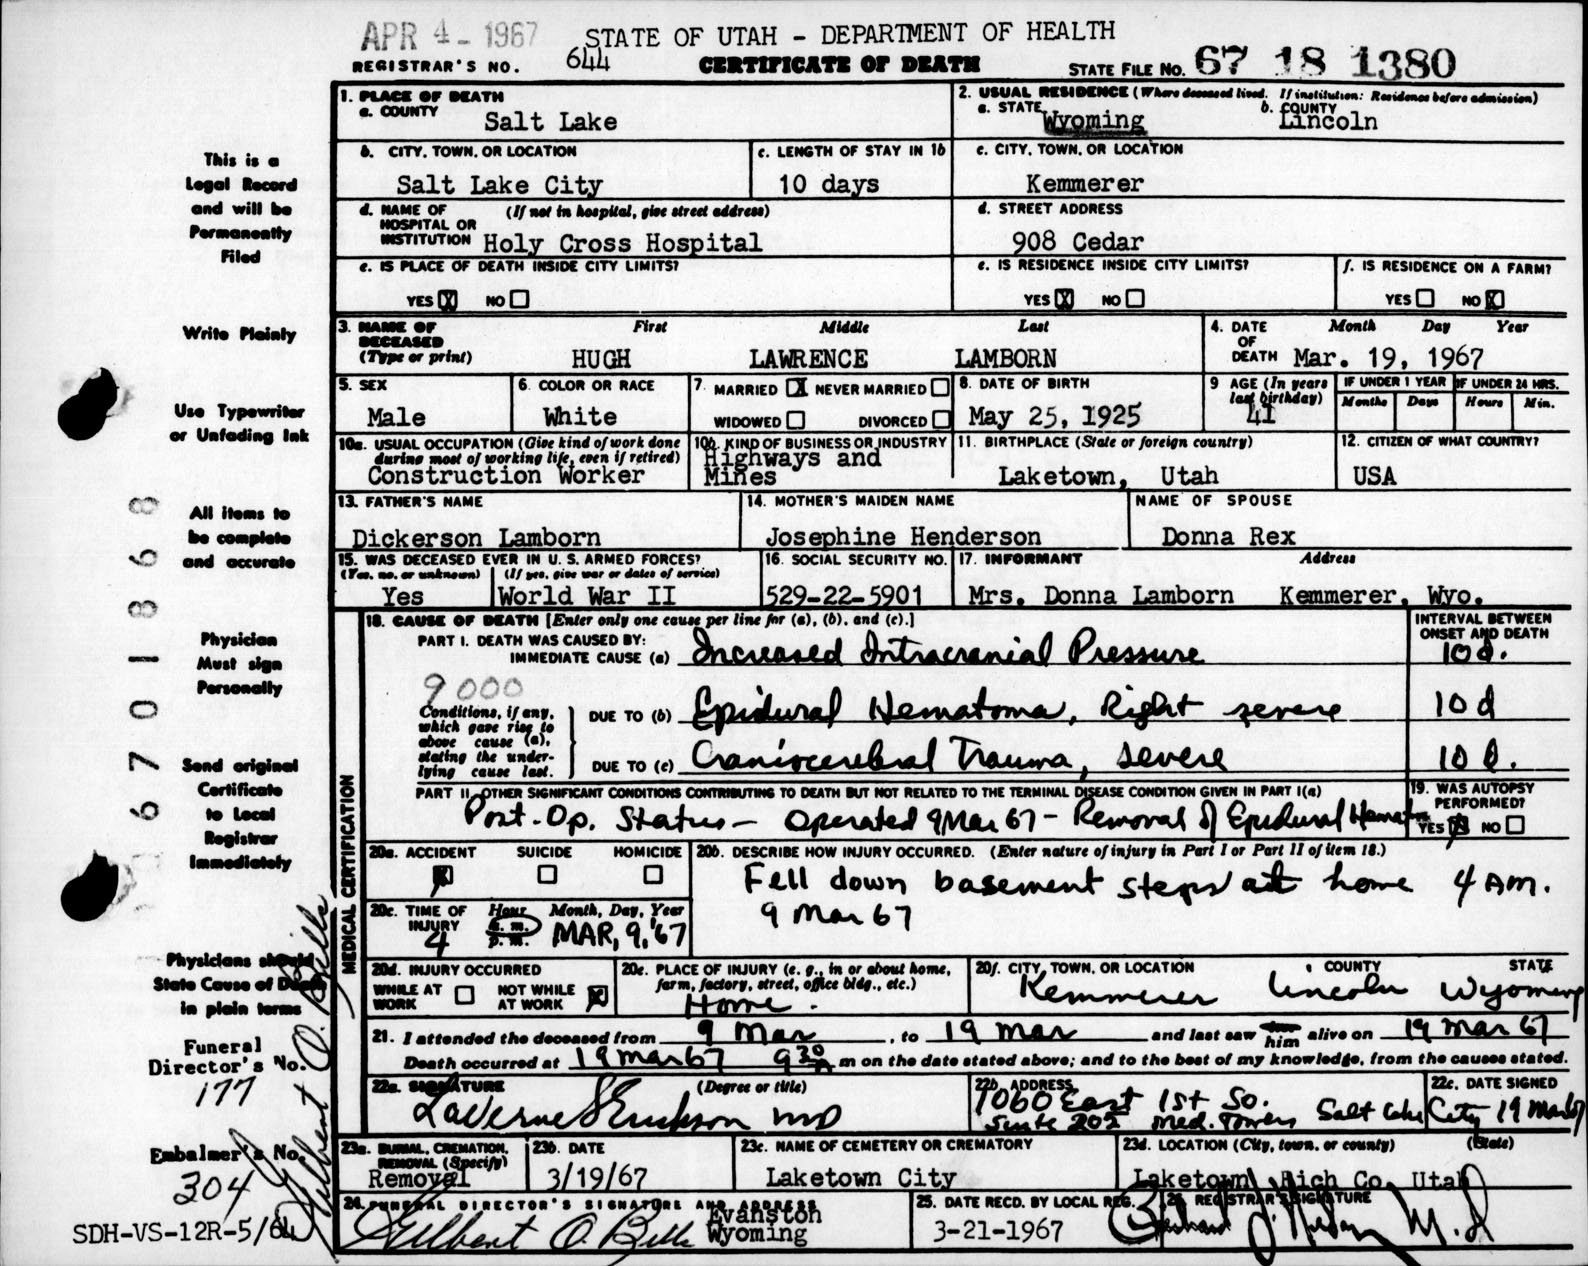 APR 4 - 1967
STATE OF UTAH - DEPARTMENT OF HEALTH
REGISTRAR'S NO. 644 CERTIFICATE OF DEATH STATE FILE NO. 67 18 1380
This is a
Legal Record
and will be
Permanently
Filed
Write Plainly
Use Typewriter
or Unfading Ink
All items to
be complete
and accurate
Physician
Must sign
Personally
Send original
Certificate
to Local
Registrar
Immediately
Physicians should
State Cause of Death
in plain terms
Funeral
Director's No.
177
Embalmer's No.
304
Gilbert O. Bills
SDH-VS-12R-5/64
67018868
1. PLACE OF DEATH
a. COUNTY Salt Lake
2. USUAL RESIDENCE (Where deceased lived. If institution: Residence before admission)
a. STATE Wyoming b. COUNTY Lincoln
b. CITY, TOWN, OR LOCATION Salt Lake City
c. LENGTH OF STAY IN 1b 10 days
c. CITY, TOWN, OR LOCATION Kemmerer
d. NAME OF HOSPITAL OR INSTITUTION (If not in hospital, give street address) Holy Cross Hospital
d. STREET ADDRESS 908 Cedar
e. IS PLACE OF DEATH INSIDE CITY LIMITS?
YES X NO
e. IS RESIDENCE INSIDE CITY LIMITS?
YES X NO
f. IS RESIDENCE ON A FARM?
YES NO X
3. NAME OF DECEASED (Type or print) First Middle Last
HUGH LAWRENCE LAMBORN
4. DATE OF DEATH Month Day Year
Mar. 19, 1967
5. SEX Male
6. COLOR OR RACE White
7. MARRIED X NEVER MARRIED
WIDOWED DIVORCED
8. DATE OF BIRTH May 25, 1925
9 AGE (In years last birthday) 41
IF UNDER 1 YEAR Months Days
IF UNDER 24 HRS. Hours Min.
10a. USUAL OCCUPATION (Give kind of work done during most of working life, even if retired)
Construction Worker
10b. KIND OF BUSINESS OR INDUSTRY
Highways and
Mines
11. BIRTHPLACE (State or foreign country)
Laketown, Utah
12. CITIZEN OF WHAT COUNTRY?
USA
13. FATHER'S NAME
Dickerson Lamborn
14. MOTHER'S MAIDEN NAME
Josephine Henderson
NAME OF SPOUSE
Donna Rex
15. WAS DECEASED EVER IN U. S. ARMED FORCES?
(Yes, no, or unknown) (If yes, give war or dates of service)
Yes World War II
16. SOCIAL SECURITY NO.
529-22-5901
17. INFORMANT Address
Mrs. Donna Lamborn Kemmerer, Wyo.
MEDICAL CERTIFICATION
18. CAUSE OF DEATH [Enter only one cause per line for (a), (b), and (c).]
INTERVAL BETWEEN ONSET AND DEATH
PART I. DEATH WAS CAUSED BY:
IMMEDIATE CAUSE (a) Increased Intracranial Pressure 10 d.
9000
Conditions, if any, which gave rise to above cause (a), stating the underlying cause last.
DUE TO (b) Epidural Hematoma, Right severe 10 d
DUE TO (c) Craniocerebral Trauma, severe 10 d.
PART II. OTHER SIGNIFICANT CONDITIONS CONTRIBUTING TO DEATH BUT NOT RELATED TO THE TERMINAL DISEASE CONDITION GIVEN IN PART I(a)
Post-Op. Status - Operated 9 Mar 67 - Removal of Epidural Hematoma
19. WAS AUTOPSY PERFORMED?
YES X NO
20a. ACCIDENT X SUICIDE HOMICIDE
20b. DESCRIBE HOW INJURY OCCURRED. (Enter nature of injury in Part I or Part II of item 18.)
Fell down basement steps at home 4 AM.
9 Mar 67
20c. TIME OF INJURY Hour a.m. p.m. Month, Day, Year
4 MAR, 9, '67
20d. INJURY OCCURRED
WHILE AT WORK NOT WHILE AT WORK X
20e. PLACE OF INJURY (e. g., in or about home, farm, factory, street, office bldg., etc.)
Home.
20f. CITY, TOWN, OR LOCATION COUNTY STATE
Kemmerer Lincoln Wyoming
21. I attended the deceased from 9 Mar, to 19 Mar and last saw her him alive on 19 Mar 67
Death occurred at 19 Mar 67 9 30 A m on the date stated above; and to the best of my knowledge, from the causes stated.
22a. SIGNATURE (Degree or title)
LaVerne S Erickson MD
22b. ADDRESS
1060 East 1st So.
Suite 202 Med. Towers Salt Lake City
22c. DATE SIGNED
19 Mar 67
23a. BURIAL, CREMATION, REMOVAL (Specify)
Removal
23b. DATE
3/19/67
23c. NAME OF CEMETERY OR CREMATORY
Laketown City
23d. LOCATION (City, town, or county) (State)
Laketown, Rich Co. Utah
24. FUNERAL DIRECTOR'S SIGNATURE AND ADDRESS
Gilbert O. Bills Evanston
Wyoming
25. DATE RECD. BY LOCAL REG.
3-21-1967
26. REGISTRAR'S SIGNATURE
M.D